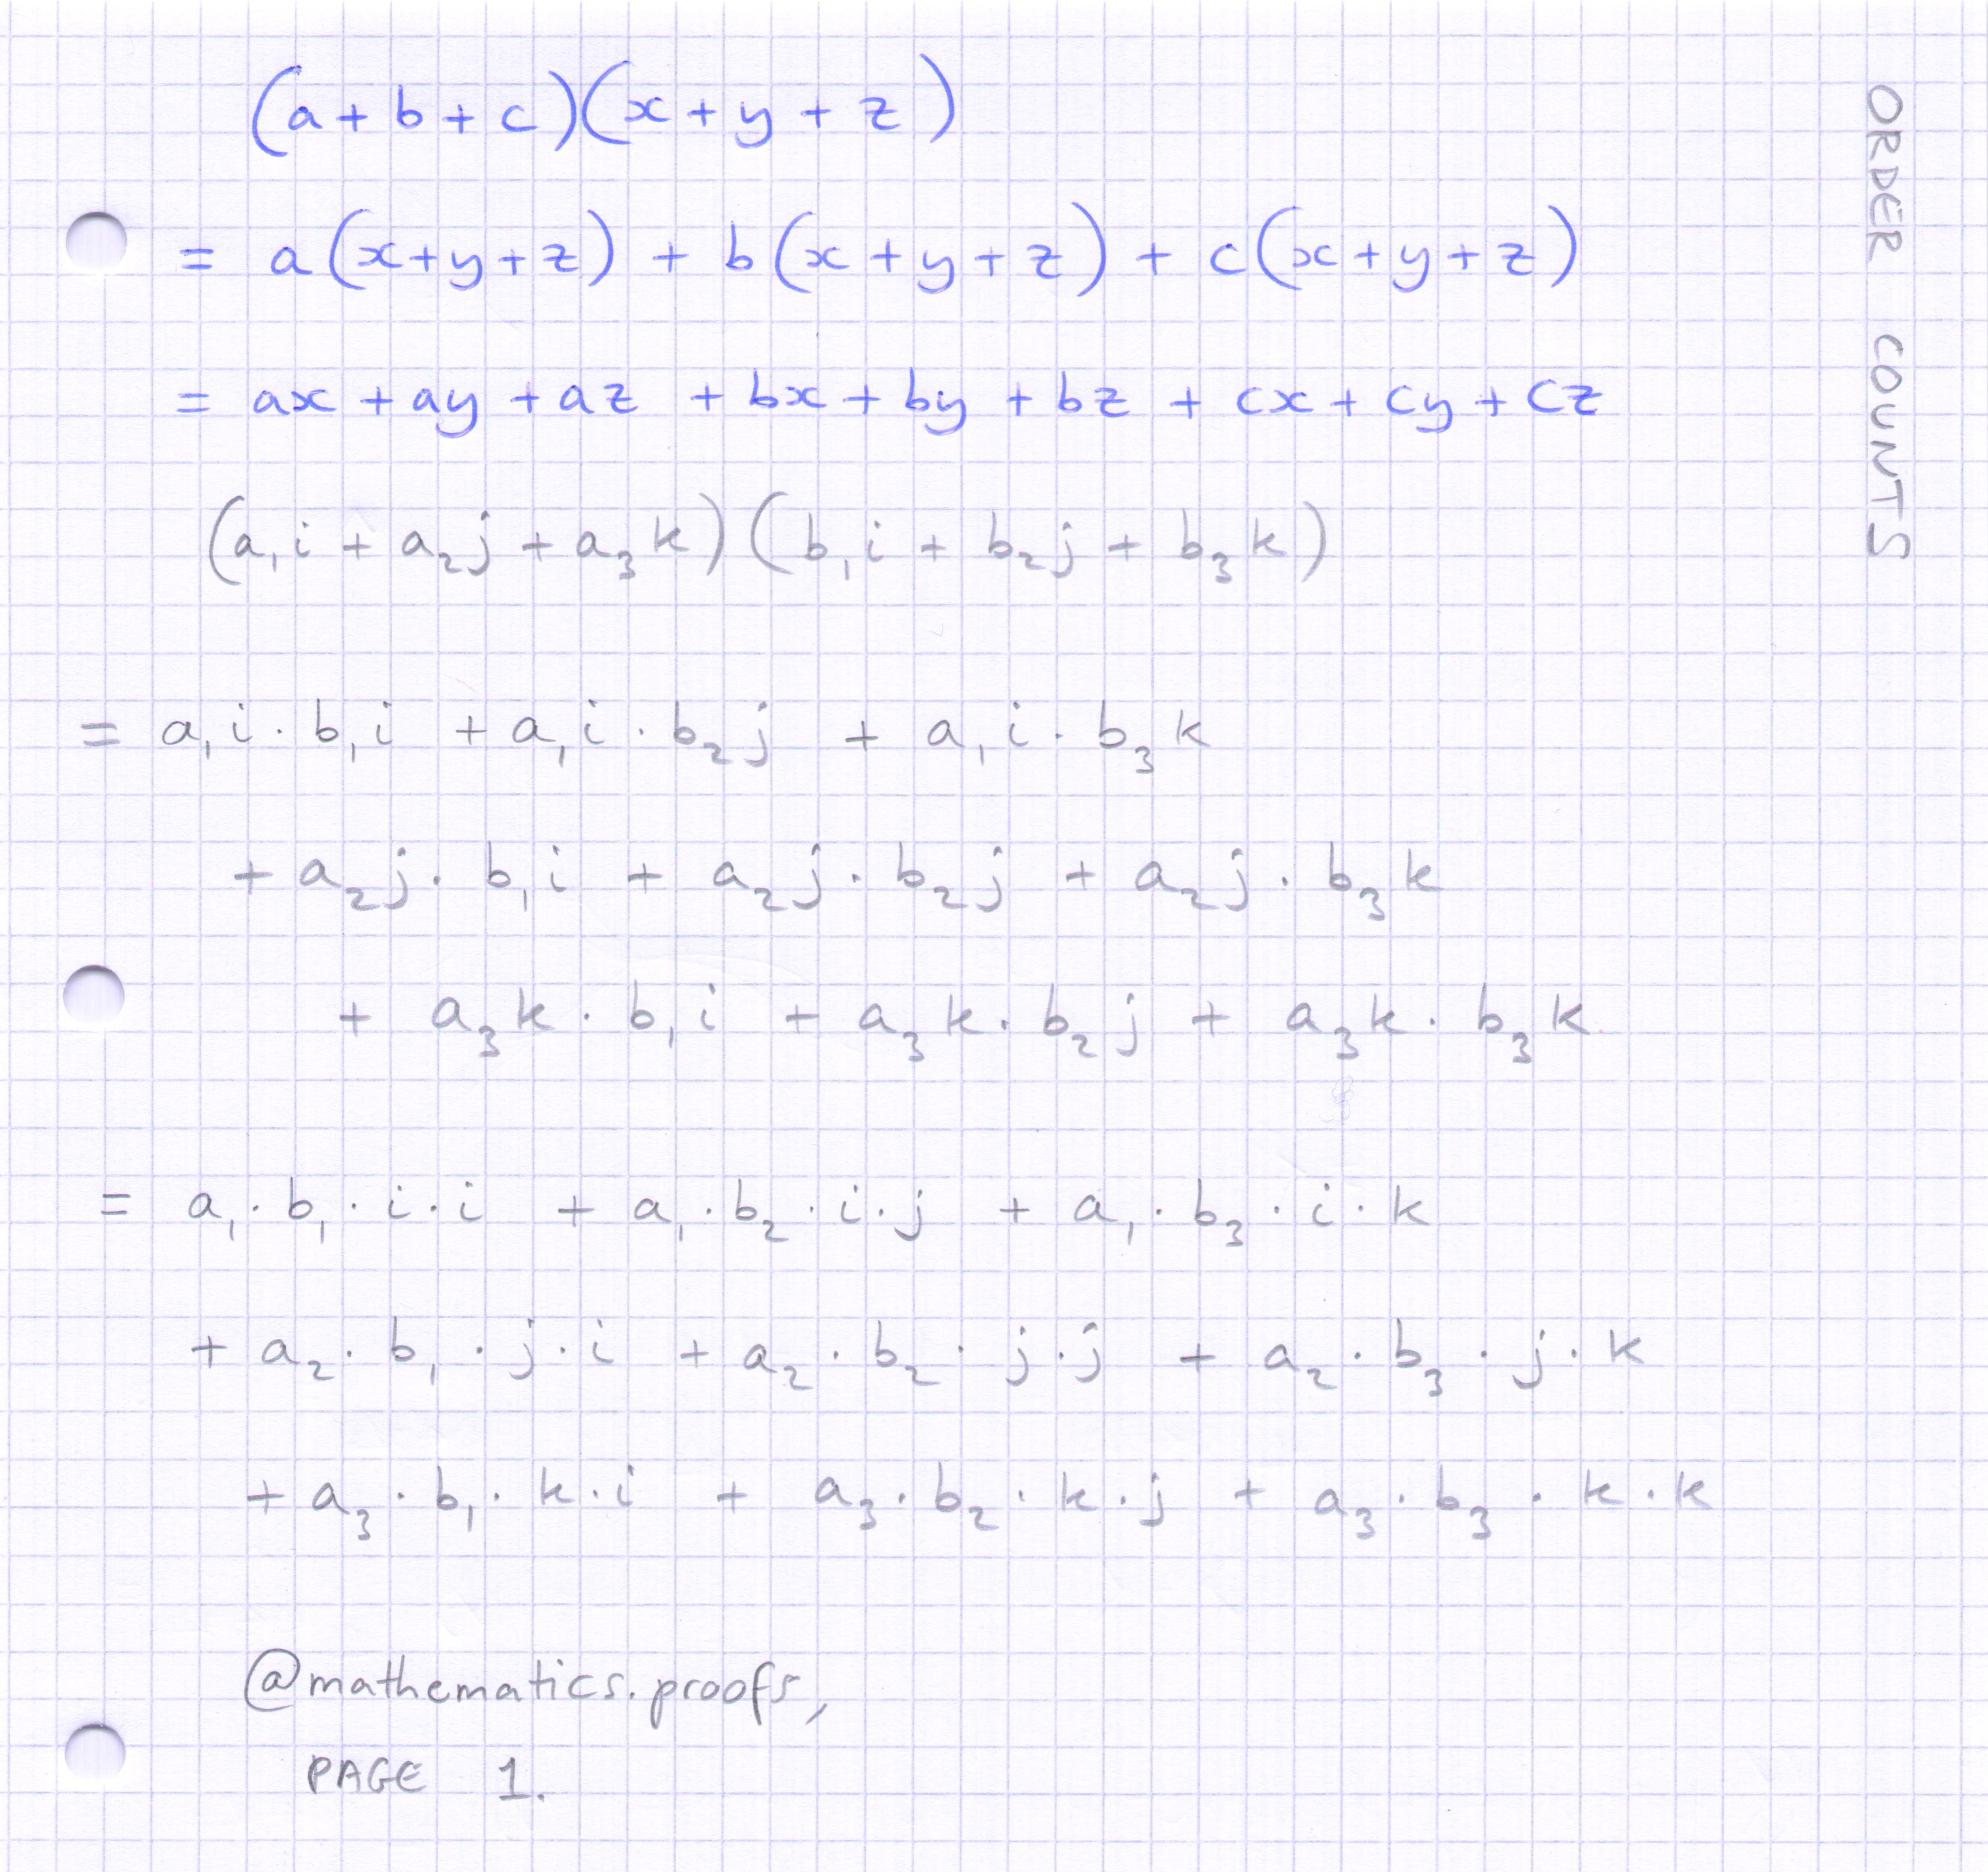 (a + b + c)(x + y + z)
= a(x+y+z) + b(x + y + z) + c(x + y + z)
= ax + ay + az + bx + by + bz + cx + cy + cz
(a₁i + a₂j + a₃k)(b₁i + b₂j + b₃k)
= a₁i · b₁i + a₁i · b₂j + a₁i · b₃k
+ a₂j · b₁i + a₂j · b₂j + a₂j · b₃k
+ a₃k · b₁i + a₃k · b₂j + a₃k · b₃k
= a₁ · b₁ · i · i + a₁ · b₂ · i · j + a₁ · b₃ · i · k
+ a₂ · b₁ · j · i + a₂ · b₂ · j · j + a₂ · b₃ · j · k
+ a₃ · b₁ · k · i + a₃ · b₂ · k · j + a₃ · b₃ · k · k
@mathematics.proofs,
PAGE 1.
ORDER COUNTS